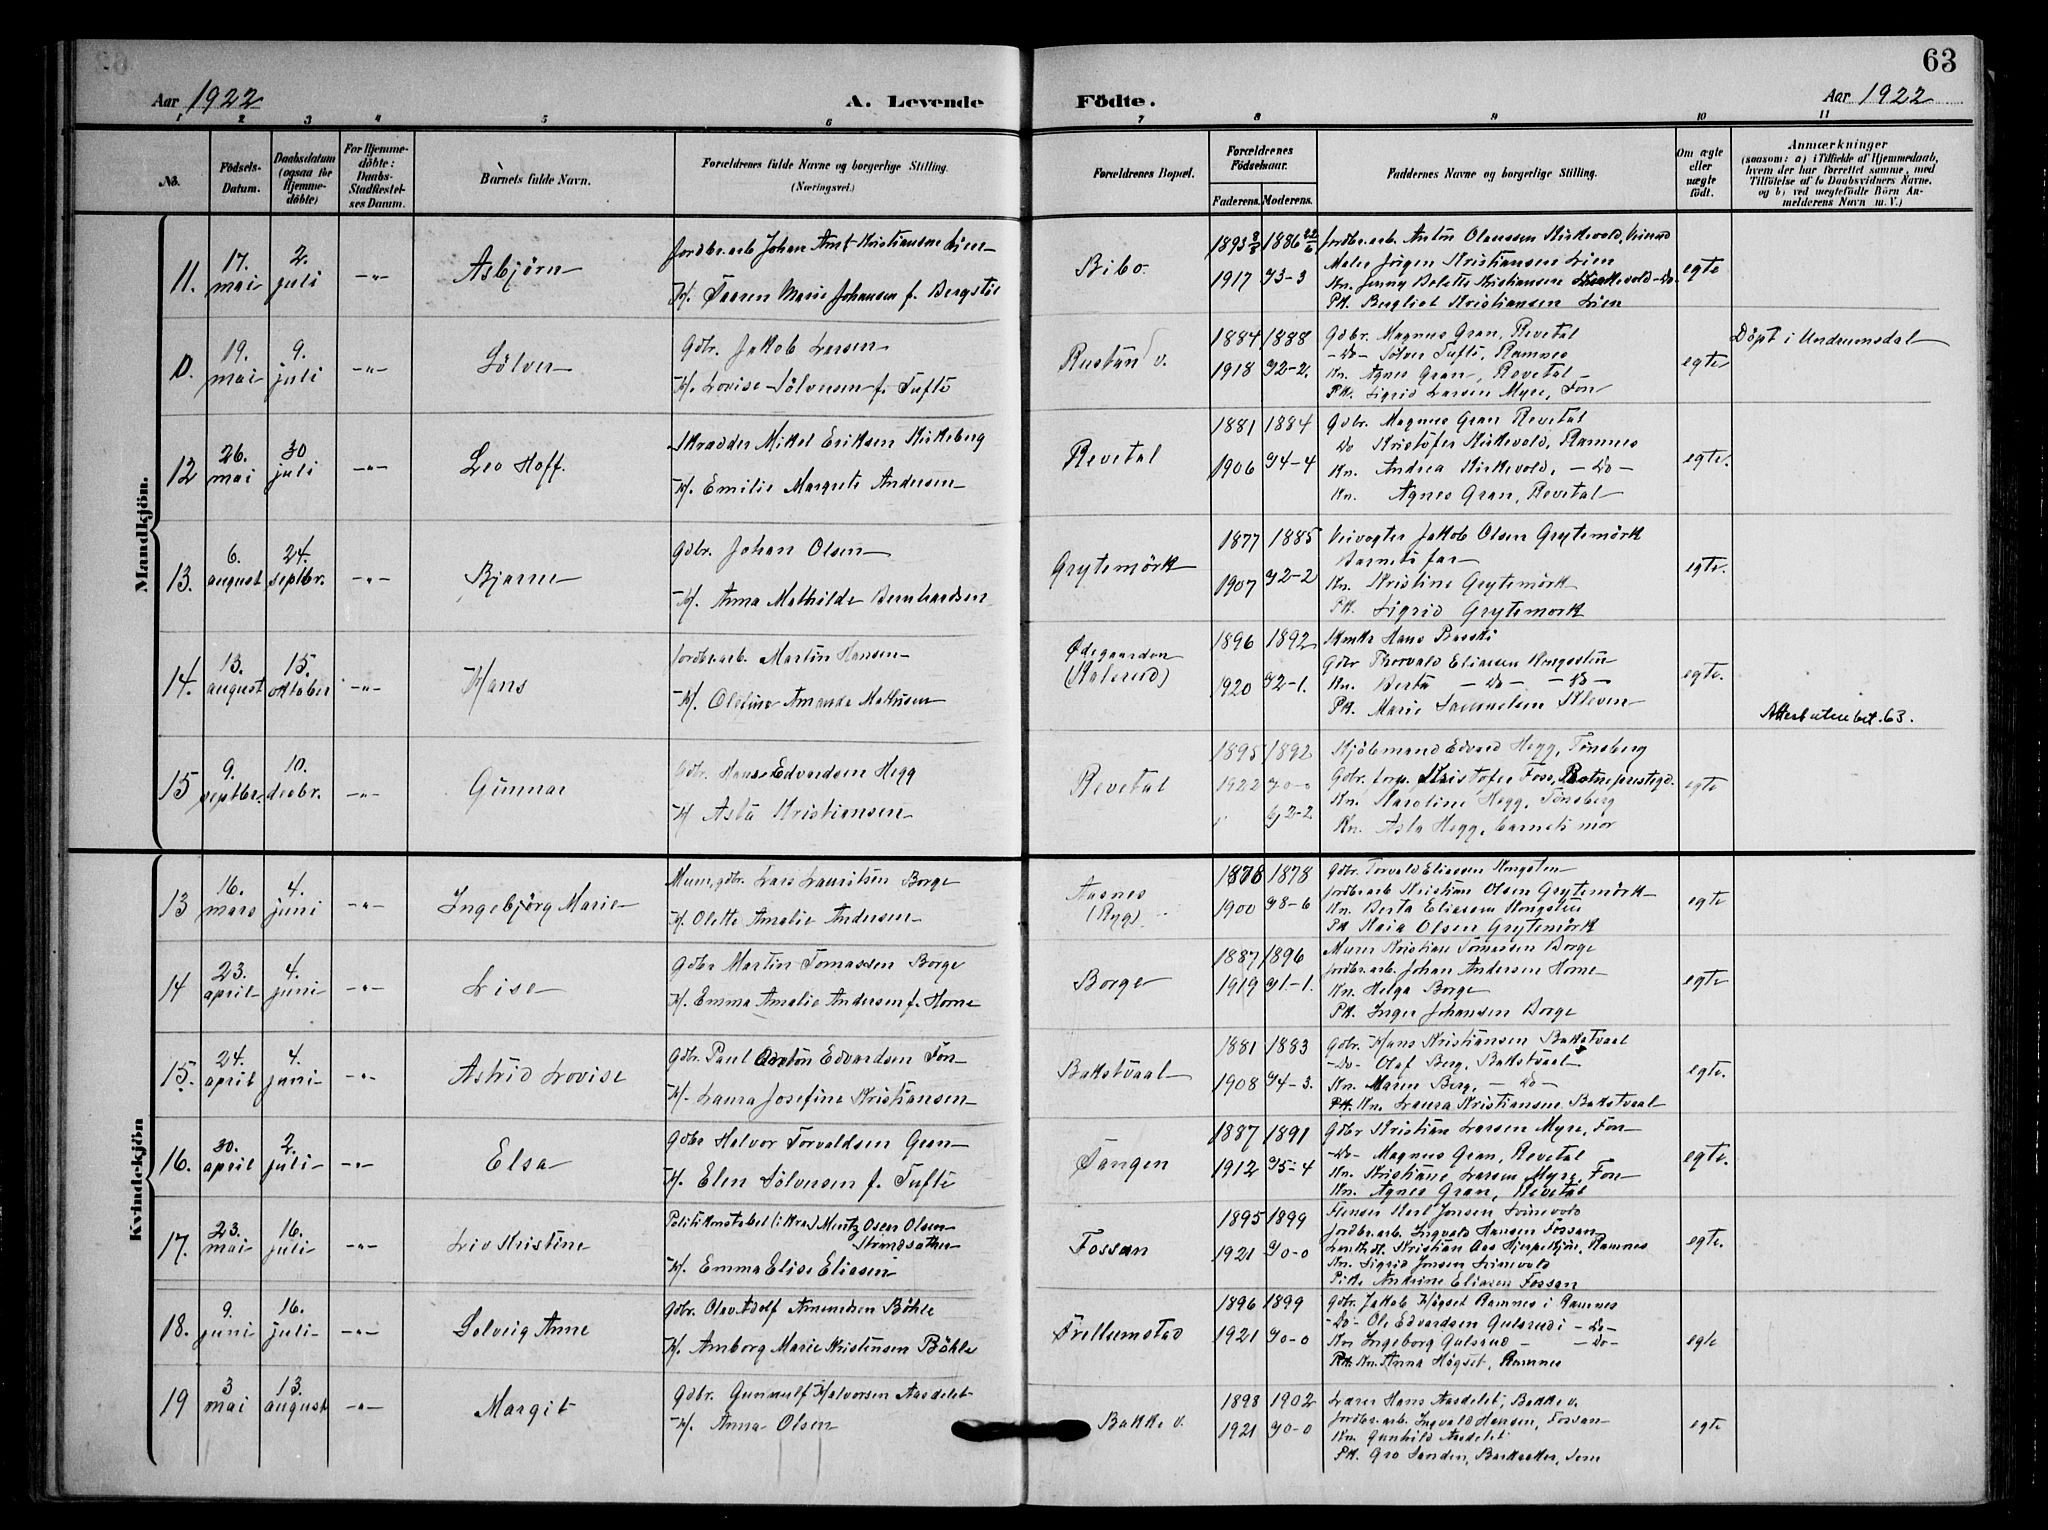 63
Aar 1922
A. Levende
Födte.
Aar 1922
1 2 3 4 5 6 7 8 9 10 11
No.
Födsels-
Datum.
Daabsdatum
(ogsaa for
Hjemme-
döbte)
For Hjemme-
döbte:
Daabs-
Stadfæstel-
ses Datum.
Barnets fulde Navn.
Forældrenes fulde Navne og borgerlige Stilling.
(Næringsvei.)
Forældrenes Bopæl.
Forældrenes
Födselsaar.
Faderens. Moderens.
Faddernes Navne og borgerlige Stilling.
Om ægte
eller
uægte
födt.
Anmærkninger
(saasom: a) i Tilfælde af Hjemmedaab,
hvem der har forrettet samme, med
Tilföielse af to Daabsvidners Navne,
og b) ved uegtefödte Börn An-
melderens Navn m. V.)
Mandkjön.
11. 17. mai 2. juli -"- Asbjörn
Jordbr.arb. Johan Arnt Kristiansen Lien
H. Maren Marie Johansen f. Bergstöl
Bibo.
1893 1886
1917 93-3
Jordbr.arb. Anton Olaussen Kirkevold,
Maler Jörgen Kristiansen Lien
Kn. Jenny Bolette Kristiansen Kirkevold -Do-
Pk. Bergliot Kristiansen Lien
egte
19. mai 9. juli -"- Sölver
Gdbr. Jakob Larsen
H. Lovise Sölvesen f. Tufte
Rustan v.
1884 1888
1918 92-2.
Gdbr. Magnus Gran, Revetal
-Do- Sölver Tufte, Ramnes
Kn. Agnes Gran, Revetal
Pk. Sigrid Larsen Myre, Fon
egte
Döpt i Undrumsdal
12 26. mai 30 juli -"- Leo Hoff.
Skradder Mikel Eriksen Kirkeberg
H. Emilie Margrete Andersen
Revetal
1881 1884
1906 94-4
Gdbr. Magnus Gran Revetal
Do Kristofer Kirkevold, Ramnes
Kn. Andrea Kirkevold, -Do-
Kn. Agnes Gran, Revetal
egte.
13. 6. august 24. septbr. -"- Bjarne
Gdbr. Johan Olsen
H. Anna Mathilde Bernhardsen
Grytemörk
1877 1885
1907 92-2
Veivogter Jakob Olsen Grytemörk
Barnets far
Kn. Kristine Grytemörk
Pk. Sigrid Grytemork
egte.
14. 13. august 15. oktober -"- Hans
Jordbr.arb. Martin Hansen
H. Oletine Amanda
Ødegaarden
1896 1892
1920 92-1.
Hans
Gdbr Thorvald Eliassen Kongsten
Kn. Berta -Do- -Do-
Pk. Marie Samuelsen Kleven
egte.
63.
15 9. septbr. 10. desbr. -"- Gunnar
Gdbr. Hans Edvardsen Hegg
H Asta Kristiansen
Revetal
1895 1892
1922 90-0
92-2
Kjöbmand Edvard Hegg, Tönsberg
Gdbr. Kristofer Foss,
Kn. Karoline Hegg, Tönsberg
Kn. Asta Hegg, barnets mor
egte
Kvindekjön
13 16. mars 4. juni -"- Ingebjörg Marie
Mur.,gdbr. Lars Lauritsen Borge
H. Olette Amalie Andersen
Aasnes
(Ryg)
1876 1878
1900 98-6
Gdbr. Torvald Eliassen Kongsten
Jordbr.arb Kristian Olsen Grytemörk
Kn. Berta Eliassen Kongsten
Pk Kaia Olsen Grytemörk
egte
14 23. april 4. juni -"- Lise
Gdbr Martin Tomassen Borge
H. Emma Amalie Andersen f. Horne
Borge
1887 1896
1919 91-1.
Murer Kristian Tomassen Borge
Jordbr.arb. Johan Andersen Horne
Kn. Helga Borge
Pk. Inger Johansen Borge
egte
15. 24. april 4. juni -"- Astrid Lovise
Gdbr. Paul Anton Edvardsen Fon
H. Laura Josefine Kristiansen
Bakstvaal
1881 1883
1908 94-3.
Gdbr. Hans Kristiansen Bakstvaal
-Do- Olaf Berg, Bakstvaal
Kn. Maren Berg, -Do-
Kn. Laura Kristiansen Bakstvaal
egte.
16. 30. april 2. juli -"- Elsa
Gdbr Halvor Torvaldsen Gran
H. Elen Sölvesen f. Tufte
Tangen
1887 1891
1912 95-4
Gdbr Kristian Larsen Myre, Fon
-Do- Magnus Gran, Revetal
Kn. Kristiane Larsen Myre, Fon
Kn. Agnes Gran, Revetal
egte.
17. 23. mai 16. juli -"- Liv Kristine
Politikonstabel (i Kra.) Mentz Oscar Olsen
Strandsæther
H. Emma Elise Eliasen
Fossan
1895 1899
1921 90-0
Karl Jensen Linnevold
Jordbr.arb. Ingvald Hansen Fossan
Kristian Aas Hjerpekjön, Ramnes
Kn. Sigrid Jensen Linnevold
Pike Andrine Eliasen Fossan
egte.
18. 9. juni 16. juli -"- Solveig Anne
Gdbr. Olav Adolf Amundsen Böhle
H. Amborg Marie Kristensen Böhle
Trellumstad
1896 1899
1921 90-0
Gdbr. Jakob Högset Ramnes i Ramnes
-Do- Ole Edvardsen Gulsrud i -Do-
Kn Ingeborg Gulsrud - -Do-
Kn. Anna Högset, Ramnes
egte
19 3 mai 13. august -"- Margit
Gdbr. Gunnulf Halvorsen Aasdelet
H. Anna Olsen
Bakke v.
1898 1902
1921 90-0
Lærer Hans Aasdelet, Bakke v.
Jordbr.arb. Ingvald Hansen, Fossan
Kn. Gunhild Aasdelet
Pk. Gro Sanden, Barkaaker, Sem
egte